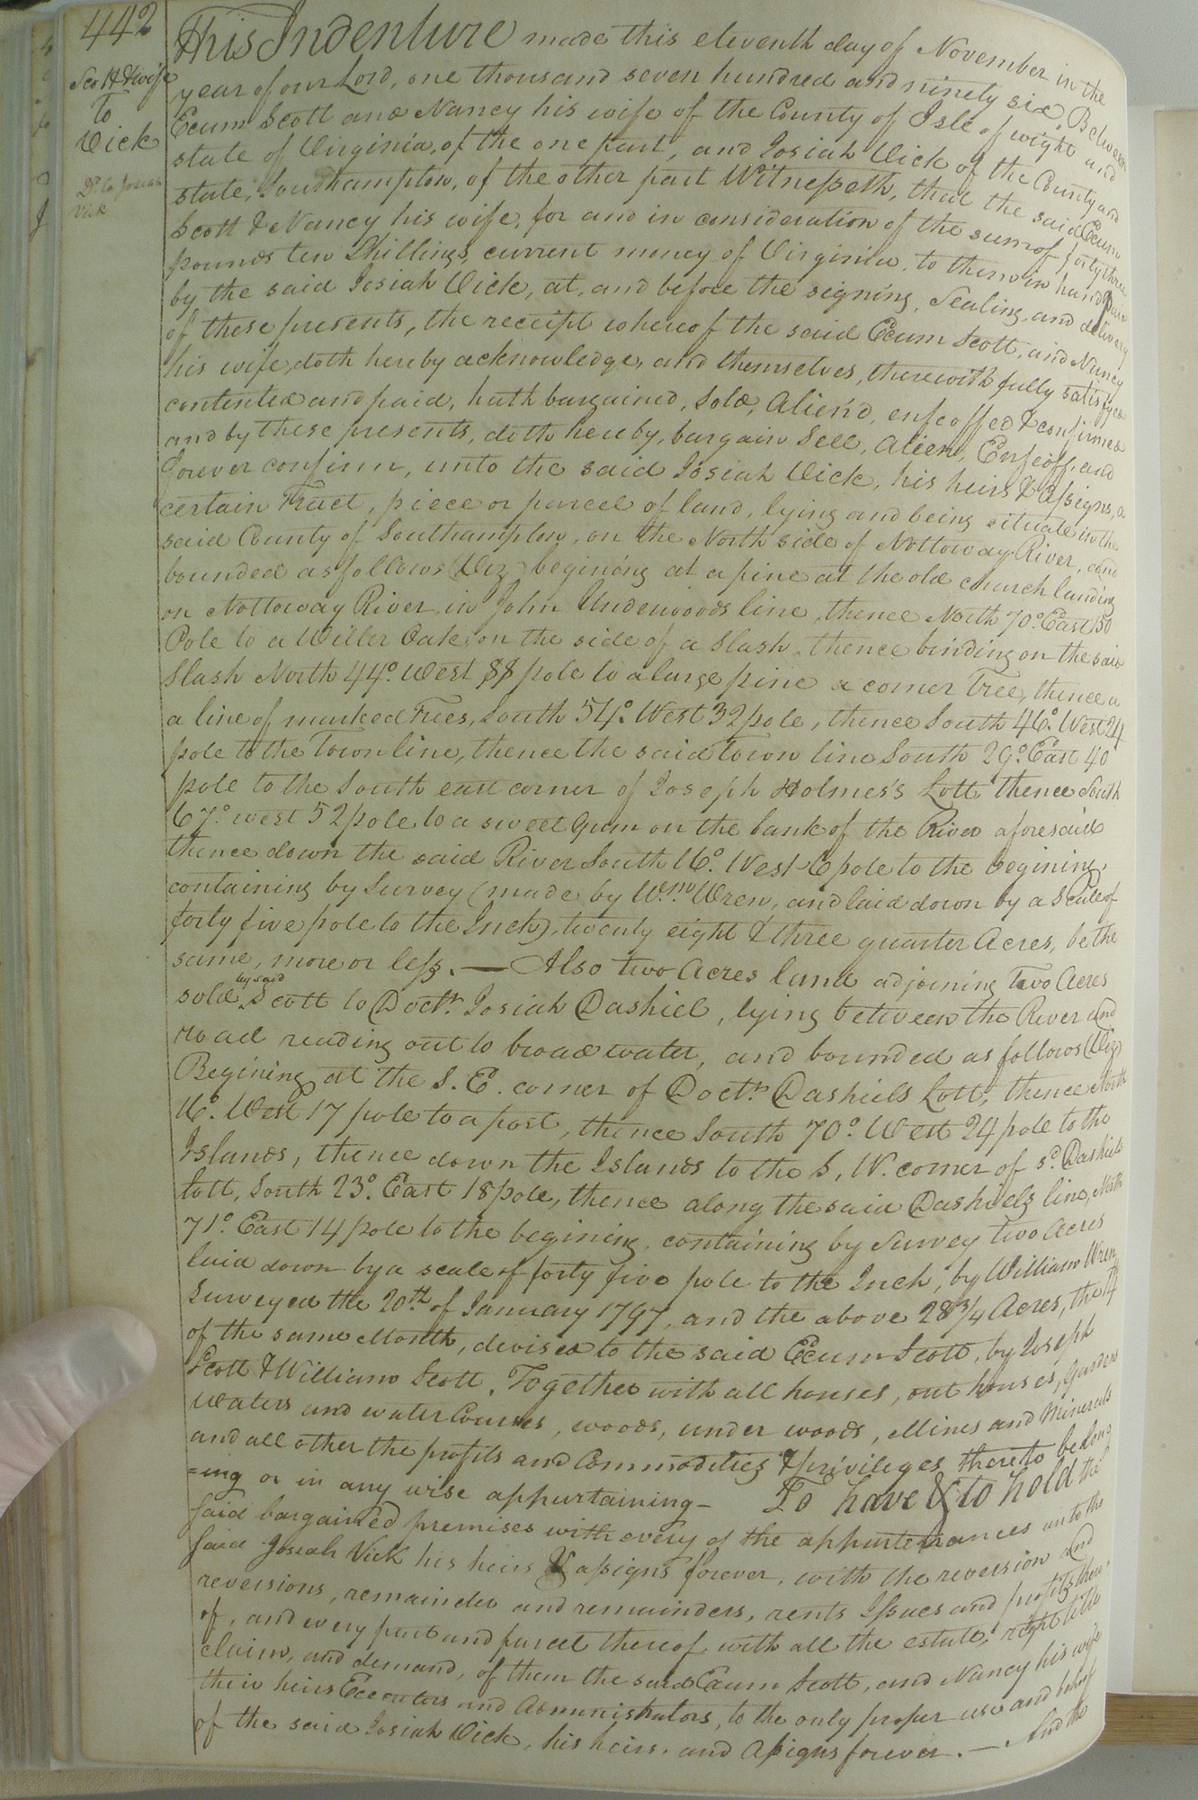 442
Scott & wife
to
Vick
Dd. to Josiah
Vick
This Indenture made this eleventh day of November in the
year of our Lord, one thousand seven hundred and ninety six, Between
Exum Scott and Nancy his wife of the County of Isle of wight and
state of Virginia, of the one part, and Josiah Vick of the County and
state, Southampton, of the other part Witnesseth, that the said Exum
Scott & Nancy his wife, for and in consideration of the sum of forty three
pounds ten Shillings, current money of Virginia, to them in hand paid
by the said Josiah Vick, at, and before the signing, Sealing, and delivery
of these presents, the receipt whereof the said Exum Scott, and Nancy
his wife, doth hereby acknowledge, and themselves, therewith fully satisfyed
contented and paid, hath bargained, Sold, Alien'd, enfeoffed & confirmed
and by these presents, doth hereby, bargain Sell, Alien, Enfeoff, and
forever confirm, unto the said Josiah Vick, his heirs & Assigns, a
certain Tract, piece or parcel of land, lying and being situate in the
said County of Southampton, on the North side of Nottoway River, and
bounded as follows (Viz) begining at a pine at the old church landing
on Nottoway River in John Underwoods line, thence North 70° East 150
Pole to a Willer Oak, on the side of a Slash, thence binding on the said
Slash North 44° West 88 pole to a large pine a corner Tree, thence a
a line of marked Trees, South 54° West 32 pole, thence South 46° West 24
pole to the Town line, thence the said Town line South 29° East 40
pole to the South east corner of Joseph Holmes's Lott thence South
67° west 52 pole to a sweet Gum on the bank of the River aforesaid
thence down the said River South 16° West 6 pole to the begining,
containing by Survey (made by Wm. Wren, and laid down by a Scale of
forty five pole to the Inch) twenty eight & three quarter Acres, be the
same, more or less. — Also two Acres land adjoining two Acres
by said
sold Scott to Doctr. Josiah Dashiel, lying between the River and
road reading out to broad water, and bounded as follows (Viz)
Begining at the S. E. corner of Doctr. Dashiels Lott, thence North
16° West 17 pole to a post, thence South 70° West 24 pole to the
Islands, thence down the Islands to the S, W. corner of sd. Dashiels
lott, South 23° East 18 pole, thence along the said Dashiels line, North
71° East 14 pole to the begining, containing by Survey two Acres
laid down by a scale of forty five pole to the Inch, by William Wren,
Surveyed the 20th. of January 1797, and the above 28 3/4 Acres, the 14
of the same Month, devised to the said Exum Scott, by Joseph
Scott & William Scott, Together with all houses, out houses, Gardens
Waters and water Courses, woods, under woods, Mines and Minerals
and all other the profits and Commodities & privileges thereto belong
=ing or in any wise appurtaining — To have & to hold the
said bargained premises with every of the appurtenances unto the
said Josiah Vick his heirs & assigns forever, with the reversion and
reversions, remainder and remainders, rents Issues and profits there
of, and every part and parcel thereof with all the estate, right title
claim, and demand, of them the said Exum Scott, and Nancy his wife
their heirs Executors and Administrators, to the only proper use and behoof
of the said Josiah Vick, his heirs, and Assigns forever. — And the